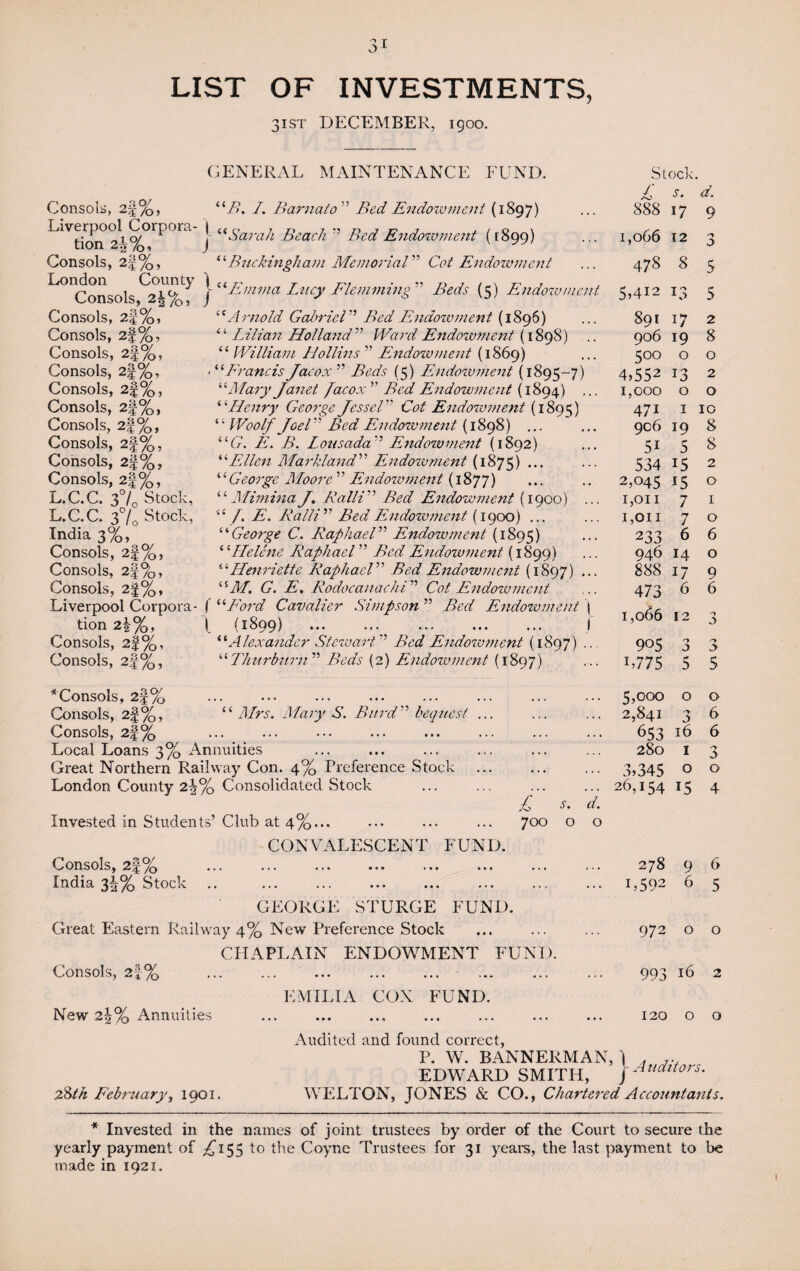 31
LIST OF INVESTMENTS,
31ST DECEMBER, 1900.
GENERAL MAINTENANCE FUND. Stock.
£ s. d.
Consols, 2¾%, “B. I. Barnato” Bed Endowment (1897) ... 888 17 9
Liverpool Corpora-tion 2½%, } “Sarah Beach” Bed Endowment (1899) ... 1,066 12 3
Consols, 2¾%, “Buckingham Memorial” Cot Endowment ... 478 8 5
London County Consols, 2½%, } “Emma Lucy Flemming” Beds (5) Endowment 5,412 13 5
Consols, 2¾%, “Arnold Gabriel” Bed Endowment (1896) ... 891 17 2
Consols, 2¾%, “Lilian Holland” Ward Endowment (1898) .. 906 19 8
Consols, 2¾%, “William Hollins” Endowment (1869) ... 500 0 0
Consols, 2¾%, “Francis Jacox” Beds (5) Endowment (1895-7) 4,552 13 2
Consols, 2¾%, “Mary Janet Jacox” Bed Endowment (1894) ... 1,000 0 0
Consols, 2¾%, “Henry George Jessel” Cot Endowment (1895) 471 1 10
Consols, 2¾%, “Woolf Joel” Bed Endowment (1898) ... ... 906 19 8
Consols, 2¾%, “G. E. B. Lousada” Endowment (1892) ... 51 5 8
Consols, 2¾%, “Ellen Markland” Endowment (1875) ... ... 534 15 2
Consols, 2¾%, “George Moore” Endowment (1877) ... .. 2,045 15 0
L.C.C. 3% Stock, “Mimina J. Ralli” Bed Endowment (1900) ... 1,011 7 1
L.C.C. 3% Stock, “J. E. Ralli” Bed Endowment (1900) ... ... 1,011 7 0
India 3%, “George C. Raphael” Endowment (1895) ... 233 6 6
Consols, 2¾%, “Helène Raphael” Bed Endowment (1899) ... 946 14 0
Consols, 2¾%, “Henriette Raphael” Bed Endowment (1897) ... 888 17 9
Consols, 2¾%, “M. G. E. Rodocanachi” Cot Endowment ... 473 6 6
Liverpool Corpora- { “Ford Cavalier Simpson” Bed Endowment }
tion 2½%, { (1899) ... ... ... ... ... } 1,066 12 3
Consols, 2¾%, “Alexander Stewart” Bed Endowment (1897) ... 905 3 3
Consols, 2¾%, “Thurburn” Beds (2) Endowment (1897) ... 1,775 5 5
*Consols, 2¾% ... ... ... ... ... ... ... ... 5,000 0 0
Consols, 2¾%, “Mrs. Mary S. Burd” bequest ... ... ... 2,841 3 6
Consols, 2¾% ... ... ... ... ... ... ... ... 653 16 6
Local Loans 3% Annuities ... ... ... ... ... ... 280 1 3
Great Northern Railway Con. 4% Preference Stock ... ... ... 3,345 0 0
London County 2½% Consolidated Stock ... ... ... ... 26,154 15 4
£ s. d.
Invested in Students’ Club at 4%... ... ... ... 700 0 0
CONVALESCENT FUND.
Consols, 2¾% ... ... ... ... ... ... ... ... 278 9 6
India 3½% Stock .. ... ... ... ... ... ... ... 1,592 6 5
GEORGE STURGE FUND.
Great Eastern Railway 4% New Preference Stock ... ... ... 972 0 0
CHAPLAIN ENDOWMENT FUND.
Consols, 2¾% ... ... ... ... ... ... ... ... 993 16 2
EMILIA COX FUND.
New 2½% Annuities ... ... ... ... ... ... ... 120 0 0
Audited and found correct,
P. W. BANNERMAN, }
EDWARD SMITH, } Auditors.
28th February, 1901. WELTON, JONES & CO., Chartered Accountants.
* Invested in the names of joint trustees by order of the Court to secure the
yearly payment of £155 to the Coyne Trustees for 31 years, the last payment to be
made in 1921.